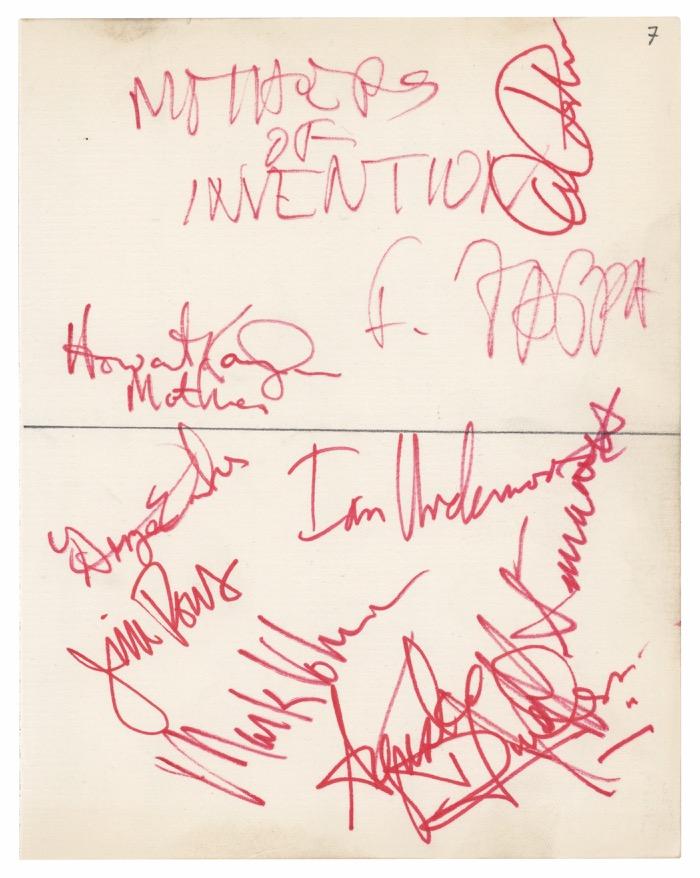 7
MOTHERS
OF
INVENTION
F. ZAPPA
Howard Kaylan
Mother
Ian Underwood
Aynsley Dunbar
Jim Pons
Mark Volman